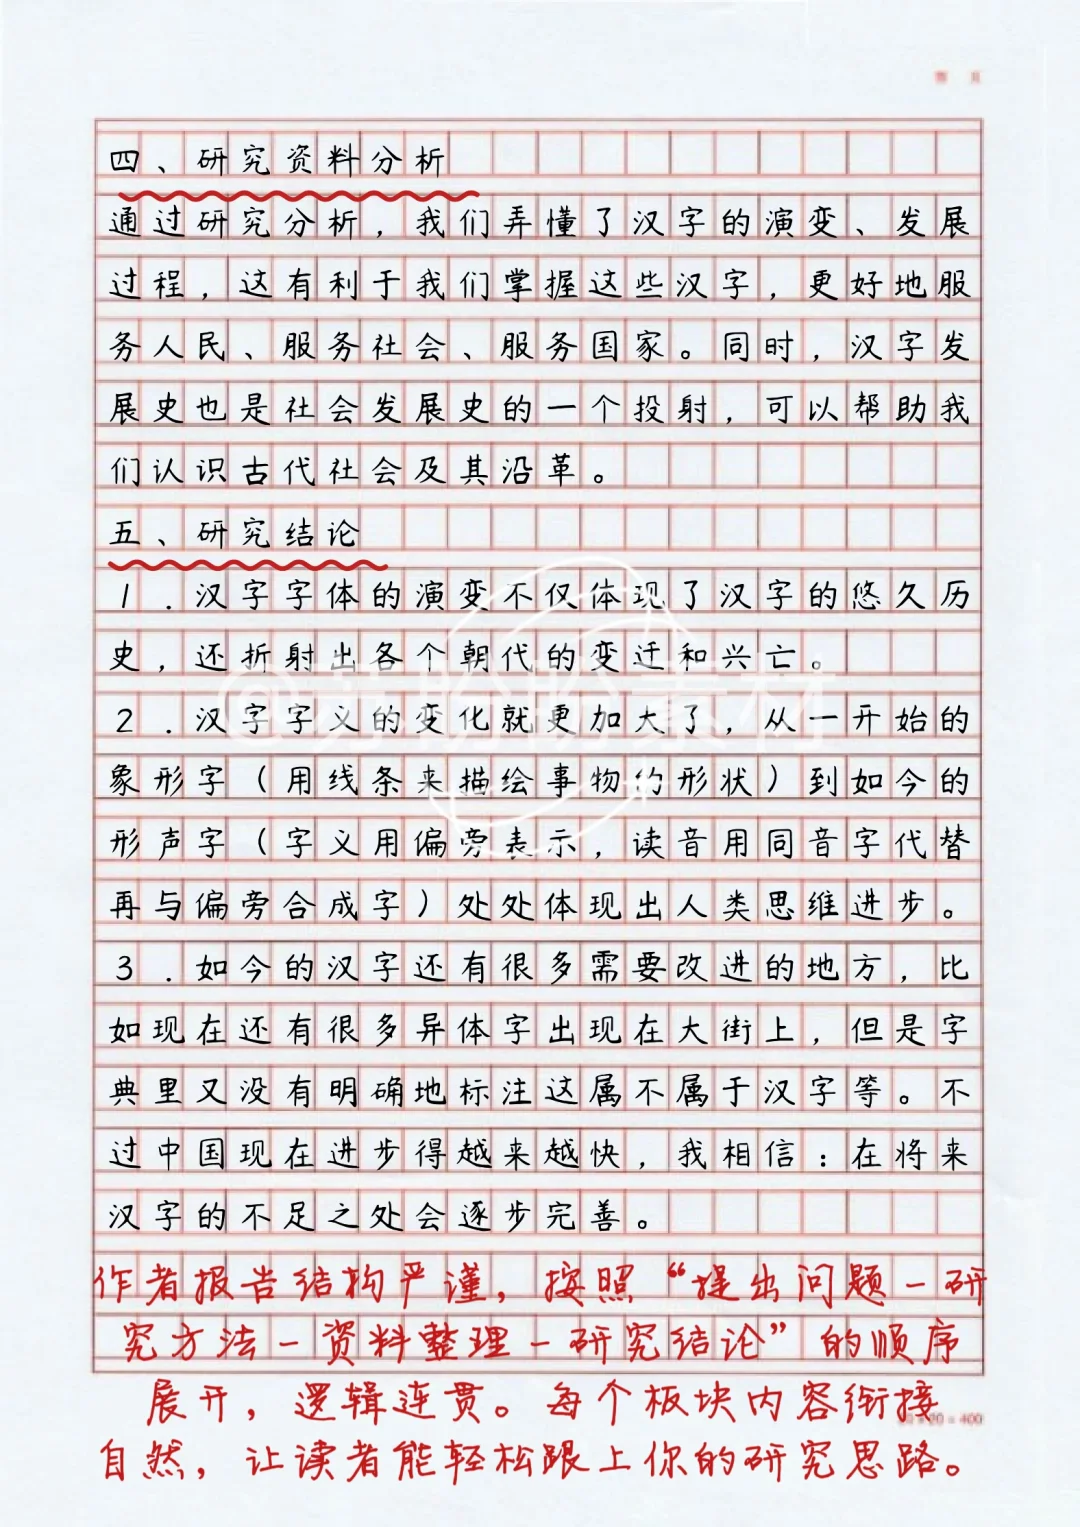 四、研究资料分析
通过研究分析，我们弄懂了汉字的演变、发展
过程，这有利于我们掌握这些汉字，更好地服
务人民、服务社会、服务国家。同时，汉字发
展史也是社会发展史的一个投射，可以帮助我
们认识古代社会及其沿革。
五、研究结论
1．汉字字体的演变不仅体现了汉字的悠久历
史，还折射出各个朝代的变迁和兴亡。
2．汉字字义的变化就更加大了，从一开始的
象形字（用线条来描绘事物的形状）到如今的
形声字（字义用偏旁表示，读音用同音字代替
再与偏旁合成字）处处体现出人类思维进步。
3．如今的汉字还有很多需要改进的地方，比
如现在还有很多异体字出现在大街上，但是字
典里又没有明确地标注这属不属于汉字等。不
过中国现在进步得越来越快，我相信：在将来
汉字的不足之处会逐步完善。
作者报告结构严谨，按照“提出问题－研
究方法－资料整理－研究结论”的顺序
展开，逻辑连贯。每个板块内容衔接
自然，让读者能轻松跟上你的研究思路。